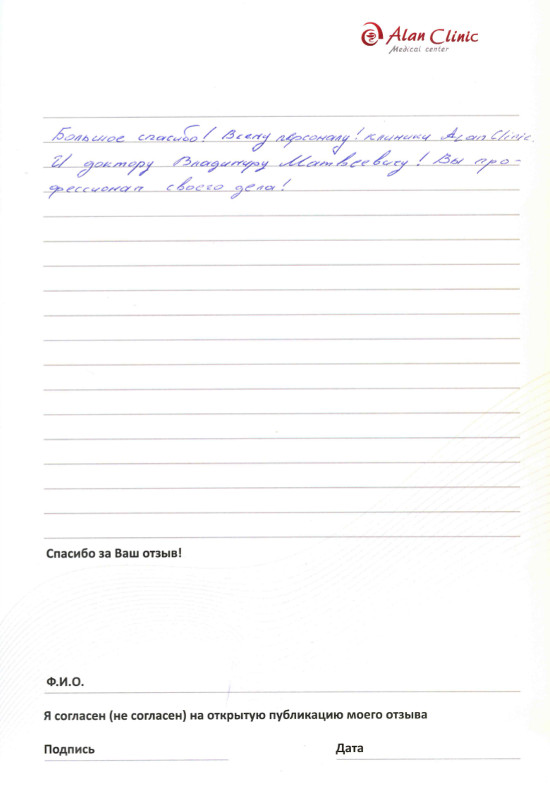 Alan Clinic
Medical center
Большое спасибо! Всему персоналу! клиники Alan Clinic.
И доктору Владимиру Матвеевичу! Вы про-
фессионал своего дела!
Спасибо за Ваш отзыв!
Ф.И.О.
Я согласен (не согласен) на открытую публикацию моего отзыва
Подпись Дата